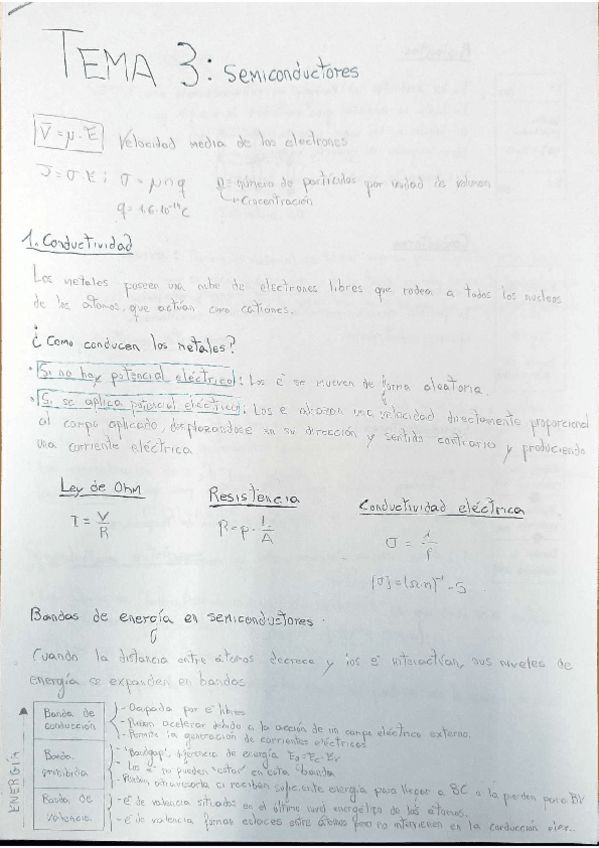 TEMA 3: Semiconductores
V̄ = μ·E Velocidad media de los electrones
J = σ·E ; σ = μnq n = número de partículas por unidad de volumen
Concentración
q = 1.6·10⁻¹⁹C
1. Conductividad
Los metales poseen una nube de electrones libres que rodea a todos los nucleos
de los átomos, que actúan como cationes.
¿Como conducen los metales?
· Si no hay potencial eléctrico: Los e⁻ se mueven de forma aleatoria
· Si se aplica potencial eléctrico: Los e alcanzan una velocidad directamente proporcional
al campo aplicado, desplazandose en su dirección y sentido contrario y produciendo
una corriente eléctrica
Ley de Ohm Resistencia Conductividad eléctrica
I = V/R R = ρ · L/A σ = 1/ρ
Bandas de energía en semiconductores
Cuando la distancia entre átomos decrece y los e⁻ interactúan, sus niveles de
energía se expanden en bandas
ENERGÍA
Banda de conducción
- Ocupada por e⁻ libres
- Pueden acelerar debido a la acción de un campo eléctrico externo.
- Permite la generación de corrientes eléctricas
Banda prohibida
- "Bandgap", diferencia de energía Eg=Ec-Ev
- Los e⁻ no pueden "estar" en esta banda
- Pueden atravesarla si reciben suficiente energía para llegar a BC o la pierden para BV
Banda de valencia
- e⁻ de valencia situados en el último nivel energético de los átomos.
- e⁻ de valencia forman enlaces entre átomos pero no intervienen en la conducción